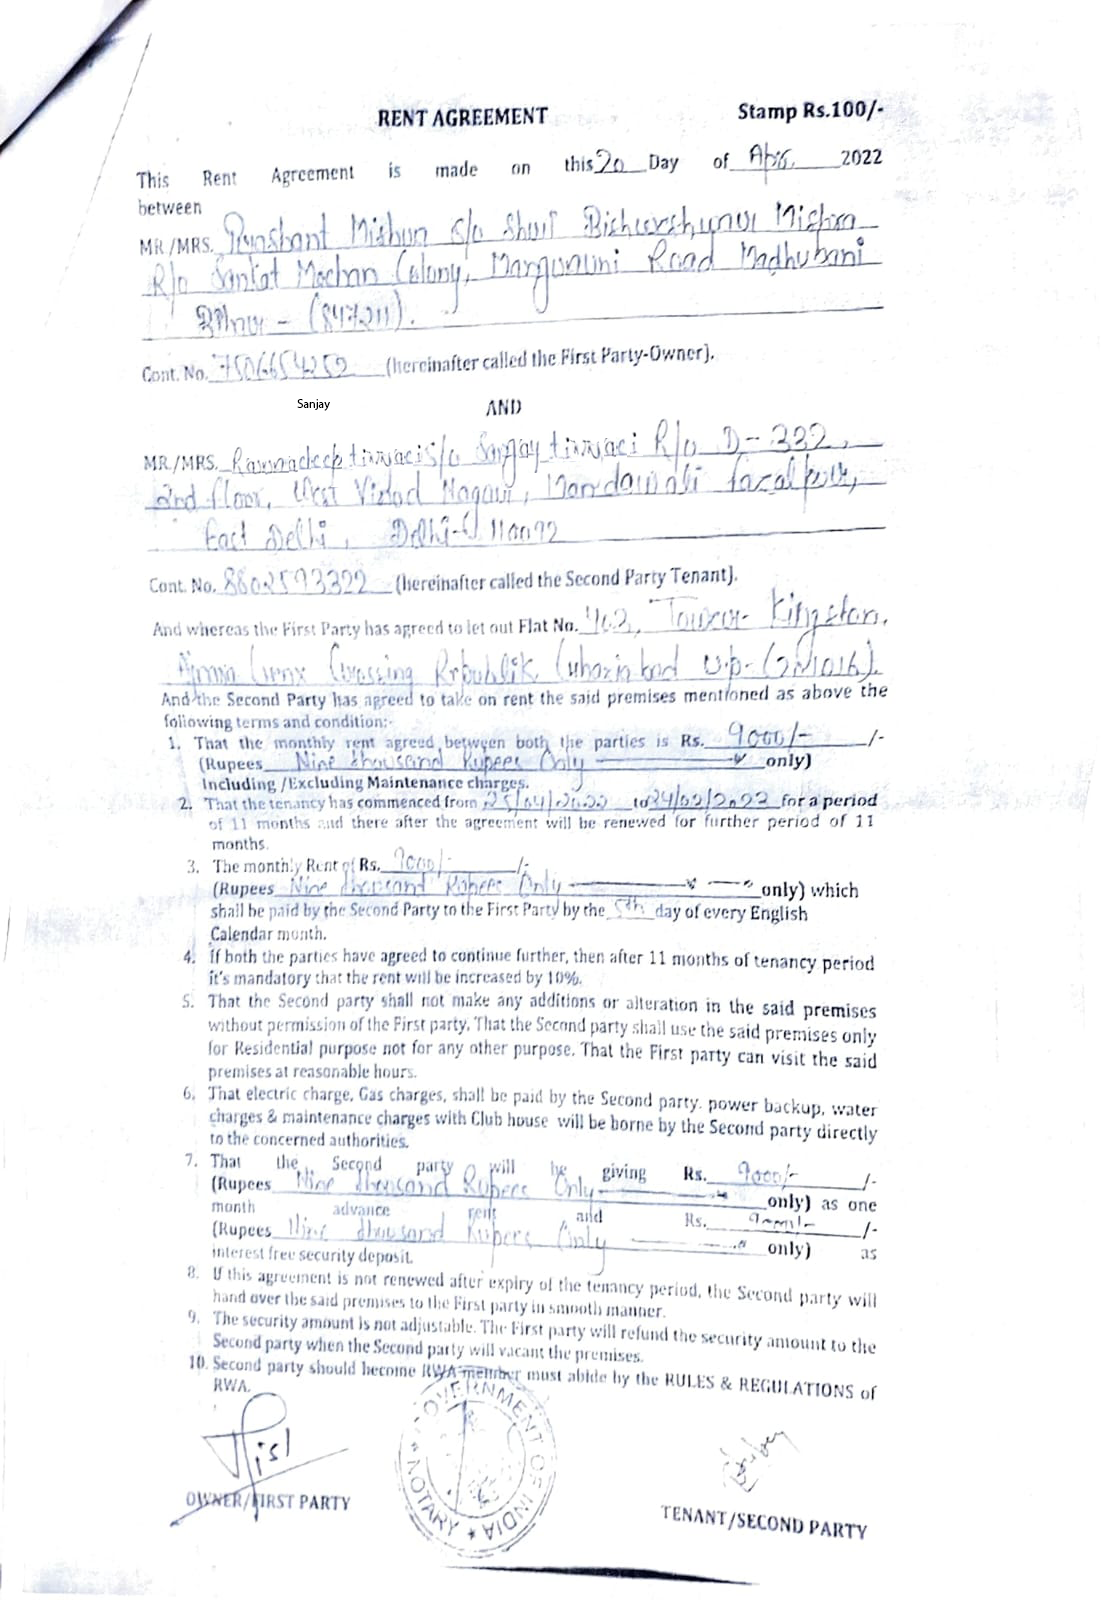 RENT AGREEMENT
Stamp Rs.100/-
This Rent Agreement is made on this 20 Day of 2022
between
MR /MRS. Mishra s/o Shri Mishra
R/o Sankat Mochan Colony, Road Madhubani
(847211).
Cont. No. 7506654252 (hereinafter called the First Party-Owner).
Sanjay
AND
MR./MRS. s/o Sanjay R/o D-332,
2nd floor, West Vinod Nagar, Mandawali fazalpur,
East Delhi, Delhi- 110092
Cont. No. 8802593322 (hereinafter called the Second Party Tenant).
And whereas the First Party has agreed to let out Flat No. 403, Tower- Kingston,
Crossing Republik up-(201016).
And the Second Party has agreed to take on rent the said premises mentioned as above the
following terms and condition:-
1. That the monthly rent agreed between both the parties is Rs. 9000/- /-
(Rupees Nine thousand Rupees Only only)
Including /Excluding Maintenance charges.
2. That the tenancy has commenced from 25/04/2022 to 24/02/2023 for a period
of 11 months and there after the agreement will be renewed for further period of 11
months.
3. The monthly Rent of Rs. 9000/- /-
(Rupees Nine thousand Rupees Only only) which
shall be paid by the Second Party to the First Party by the 5th day of every English
Calendar month.
4. If both the parties have agreed to continue further, then after 11 months of tenancy period
it's mandatory that the rent will be increased by 10%.
5. That the Second party shall not make any additions or alteration in the said premises
without permission of the First party. That the Second party shall use the said premises only
for Residential purpose not for any other purpose. That the First party can visit the said
premises at reasonable hours.
6. That electric charge, Gas charges, shall be paid by the Second party. power backup, water
charges & maintenance charges with Club house will be borne by the Second party directly
to the concerned authorities.
7. That the Second party will be giving Rs. 9000/- /-
(Rupees Nine thousand Rupees Only only) as one
month advance rent and Rs. /-
(Rupees Nine thousand Rupees Only only) as
interest free security deposit.
8. If this agreement is not renewed after expiry of the tenancy period, the Second party will
hand over the said premises to the First party in smooth manner.
9. The security amount is not adjustable. The First party will refund the security amount to the
Second party when the Second party will vacant the premises.
10. Second party should become RWA member must abide by the RULES & REGULATIONS of
RWA.
GOVERNMENT OF INDIA
★ NOTARY ★
OWNER/FIRST PARTY
TENANT/SECOND PARTY